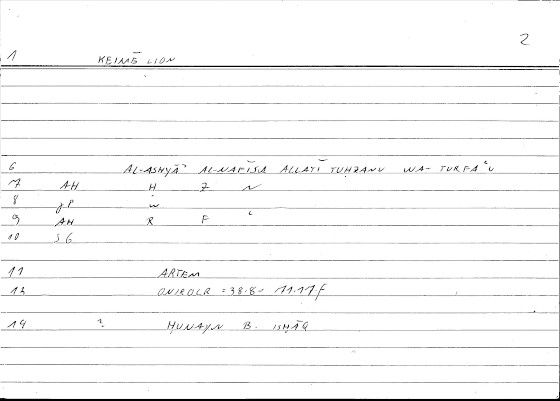 2
1 KEIMĒLION
6 AL-ASHYĀʾ AL-NAFĪSA ALLATĪ TUḤZANU WA-TURFAʿU
7 AH Ḥ Z N
8 JP W
9 AH R F ʿ
10 SG
11 ARTEM
12 ONIROCR =38.8= 11.17.f
14 ? ḤUNAYN B. ISḤĀQ